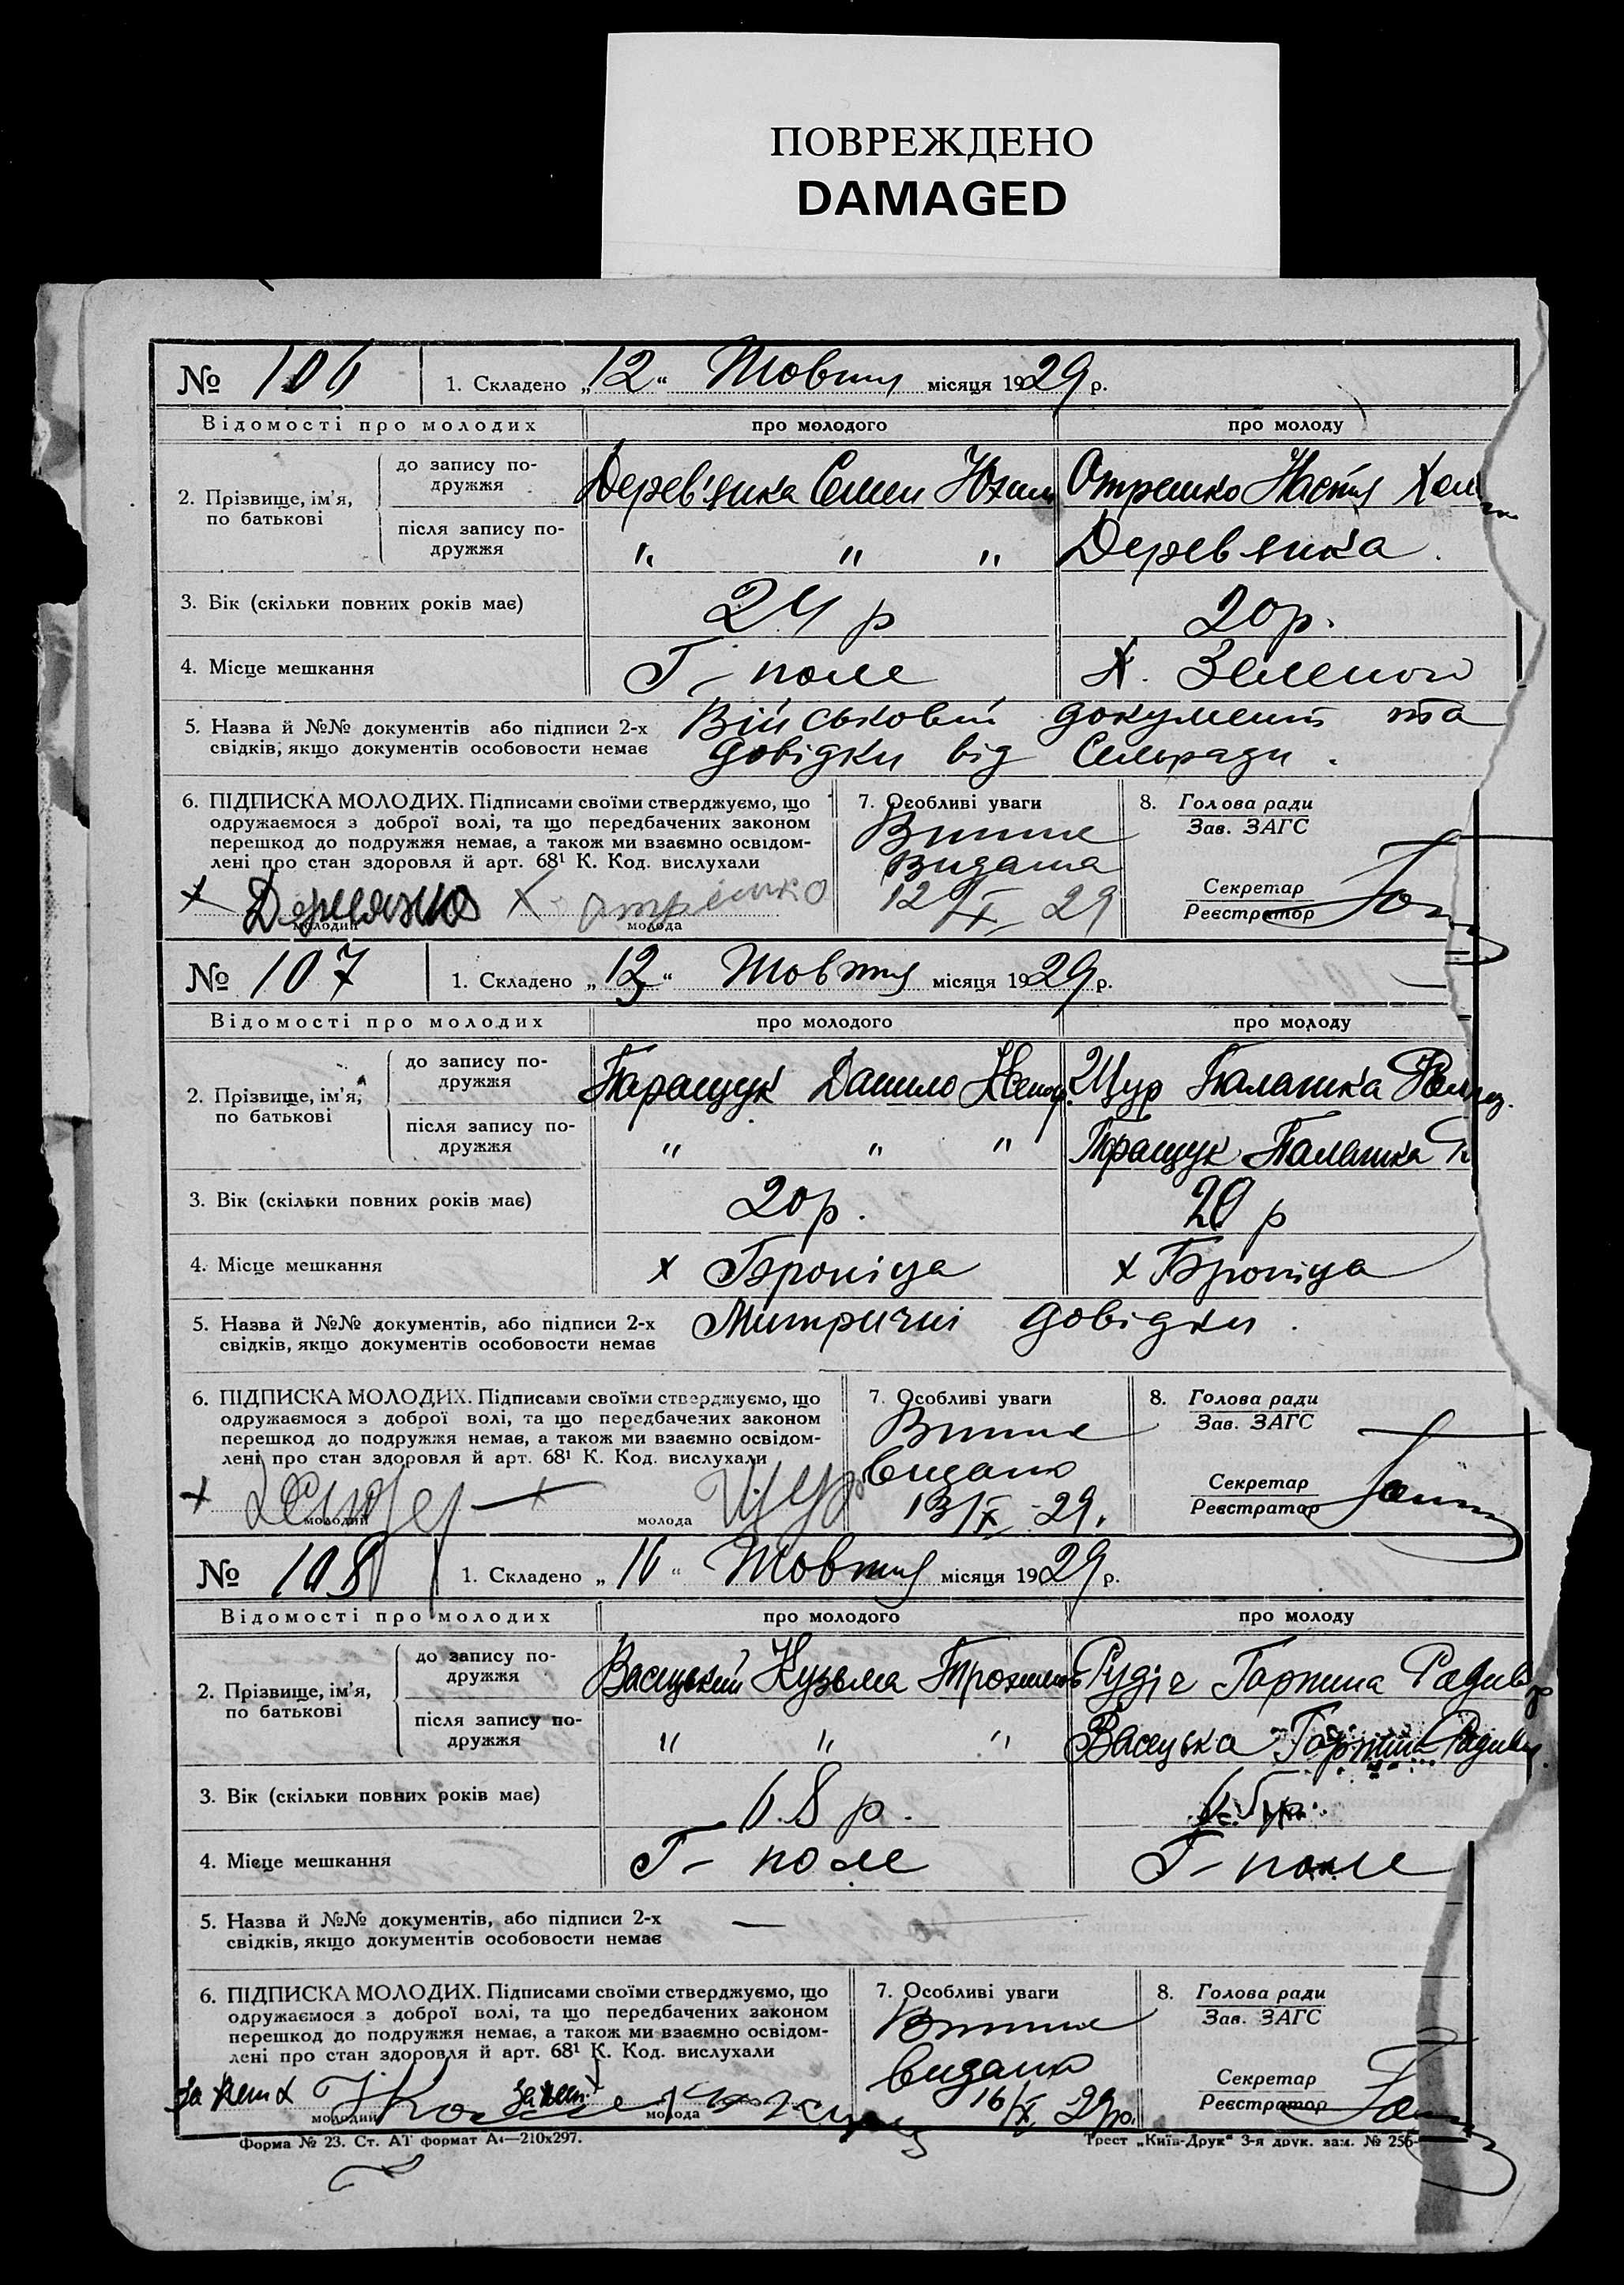 ПОВРЕЖДЕНО
DAMAGED
№ 106 1. Складено „12“ Жовтня місяця 1929 р.
Відомості про молодих про молодого про молоду
2. Прізвище, ім'я, по батькові
до запису подружжя Дерев'янка Семен Юхим Отрешко Настя
після запису подружжя „ „ „ Дерев'янка
3. Вік (скільки повних років має) 24 р 20 р.
4. Місце мешкання Г-поле Х. Зеленого
5. Назва й №№ документів або підписи 2-х Військовий документ та
свідків, якщо документів особовости немає довідки від Сельради.
6. ПІДПИСКА МОЛОДИХ. Підписами своїми стверджуємо, що
одружаємося з доброї волі, та що передбачених законом
перешкод до подружжя немає, а також ми взаємно освідом-
лені про стан здоровля й арт. 68¹ К. Код. вислухали
х х Отрешко
молодий молода
7. Особливі уваги
Витяг
видана
12/X 29
8. Голова ради
Зав. ЗАГС
Секретар
Реєстратор
№ 107 1. Складено „13“ Жовтня місяця 1929 р.
Відомості про молодих про молодого про молоду
2. Прізвище, ім'я, по батькові
до запису подружжя Паращук Данило Щур Палашка
після запису подружжя „ „ „ Паращук Палашка
3. Вік (скільки повних років має) 20 р. 20 р
4. Місце мешкання х Броніца х Броніца
5. Назва й №№ документів, або підписи 2-х Митричні довідки.
свідків, якщо документів особовости немає
6. ПІДПИСКА МОЛОДИХ. Підписами своїми стверджуємо, що
одружаємося з доброї волі, та що передбачених законом
перешкод до подружжя немає, а також ми взаємно освідом-
лені про стан здоровля й арт. 68¹ К. Код. вислухали
х х Щур
молодий молода
7. Особливі уваги
Витяг
видано
13/X 29.
8. Голова ради
Зав. ЗАГС
Секретар
Реєстратор
№ 108 1. Складено „16“ Жовтня місяця 1929 р.
Відомості про молодих про молодого про молоду
2. Прізвище, ім'я, по батькові
до запису подружжя Васецький Кузьма Трохимов Рудіч Горпина Радив
після запису подружжя „ „ „ Васецька Горпин Радив
3. Вік (скільки повних років має) 68 р. 65 р.
4. Місце мешкання Г-поле Г-поле
5. Назва й №№ документів, або підписи 2-х —
свідків, якщо документів особовости немає
6. ПІДПИСКА МОЛОДИХ. Підписами своїми стверджуємо, що
одружаємося з доброї волі, та що передбачених законом
перешкод до подружжя немає, а також ми взаємно освідом-
лені про стан здоровля й арт. 68¹ К. Код. вислухали
молодий молода
7. Особливі уваги
Витяг
видано
16/X 29 р.
8. Голова ради
Зав. ЗАГС
Секретар
Реєстратор
Форма № 23. Ст. АТ формат А4—210х297. Трест „Київ-Друк“ 3-я друк. зам. № 256-